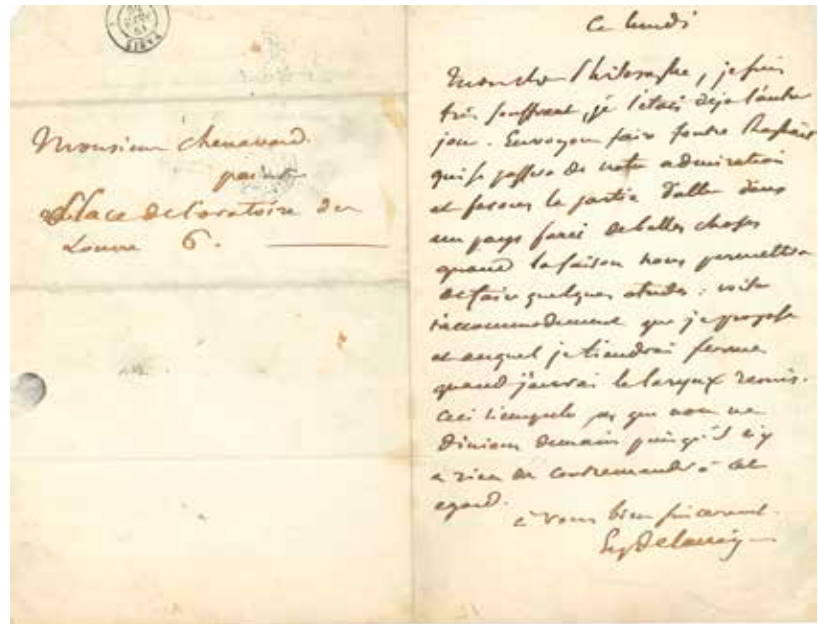 PARIS
Monsieur Chenavard.
peintre
Place de l'oratoire du
Louvre 6.
Ce lundi
Mon cher Philosophe, je suis
très souffrant, je l'étais déja l'autre
jour. Envoyons faire foutre Raphaël
qui se passera de notre admiration
et faisons la partie d'aller dans
un pays farci de belles choses
quand la saison nous permettra
de faire quelques études : voila
l'accommodement que je propose
et auquel je tiendrai ferme
quand j'aurai le larynx remis.
Ceci n'empêche pas que nous ne
dinions demain puisqu'il n'y
a rien de contremandé à cet
egard.
à vous bien sincerement.
Eug Delacroix